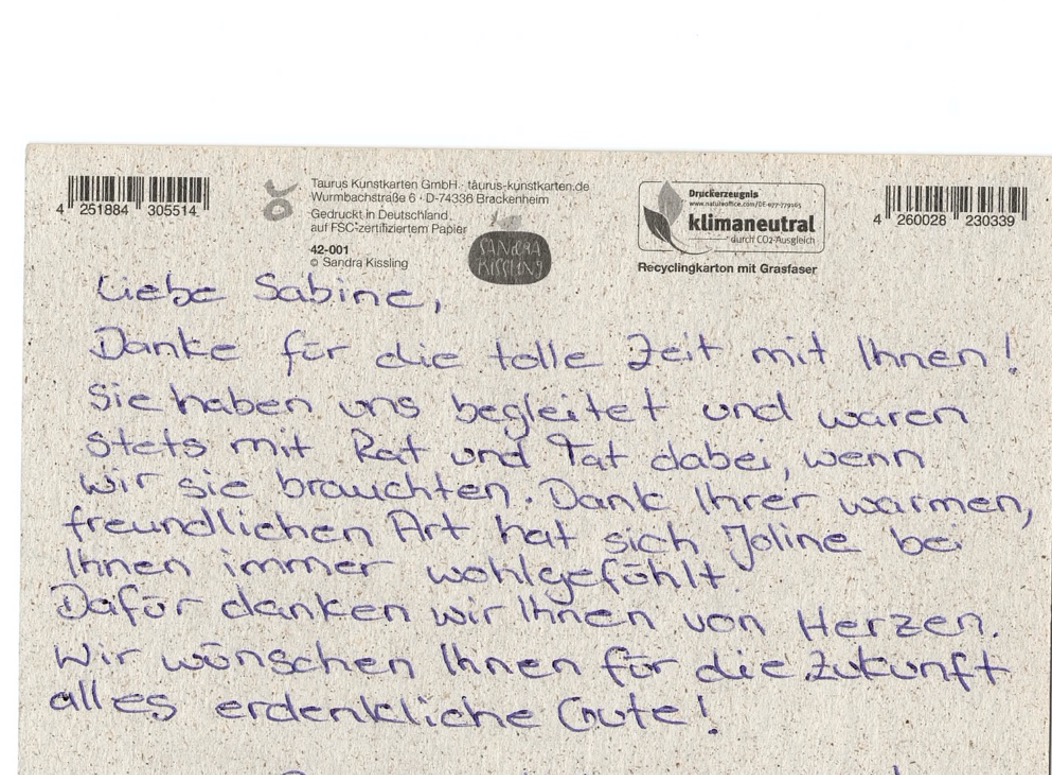 4 251884 305514
Taurus Kunstkarten GmbH · taurus-kunstkarten.de
Wurmbachstraße 6 · D-74336 Brackenheim
Gedruckt in Deutschland,
auf FSC-zertifiziertem Papier
42-001
© Sandra Kissling
SANDRA
KISSLING
Druckerzeugnis
klimaneutral
durch CO2-Ausgleich
Recyclingkarton mit Grasfaser
4 260028 230339
Liebe Sabine,
Danke für die tolle Zeit mit Ihnen!
Sie haben uns begleitet und waren
stets mit Rat und Tat dabei, wenn
wir sie brauchten. Dank Ihrer warmen,
freundlichen Art hat sich Joline bei
Ihnen immer wohlgefühlt.
Dafür danken wir Ihnen von Herzen.
Wir wünschen Ihnen für die Zukunft
alles erdenkliche Gute!